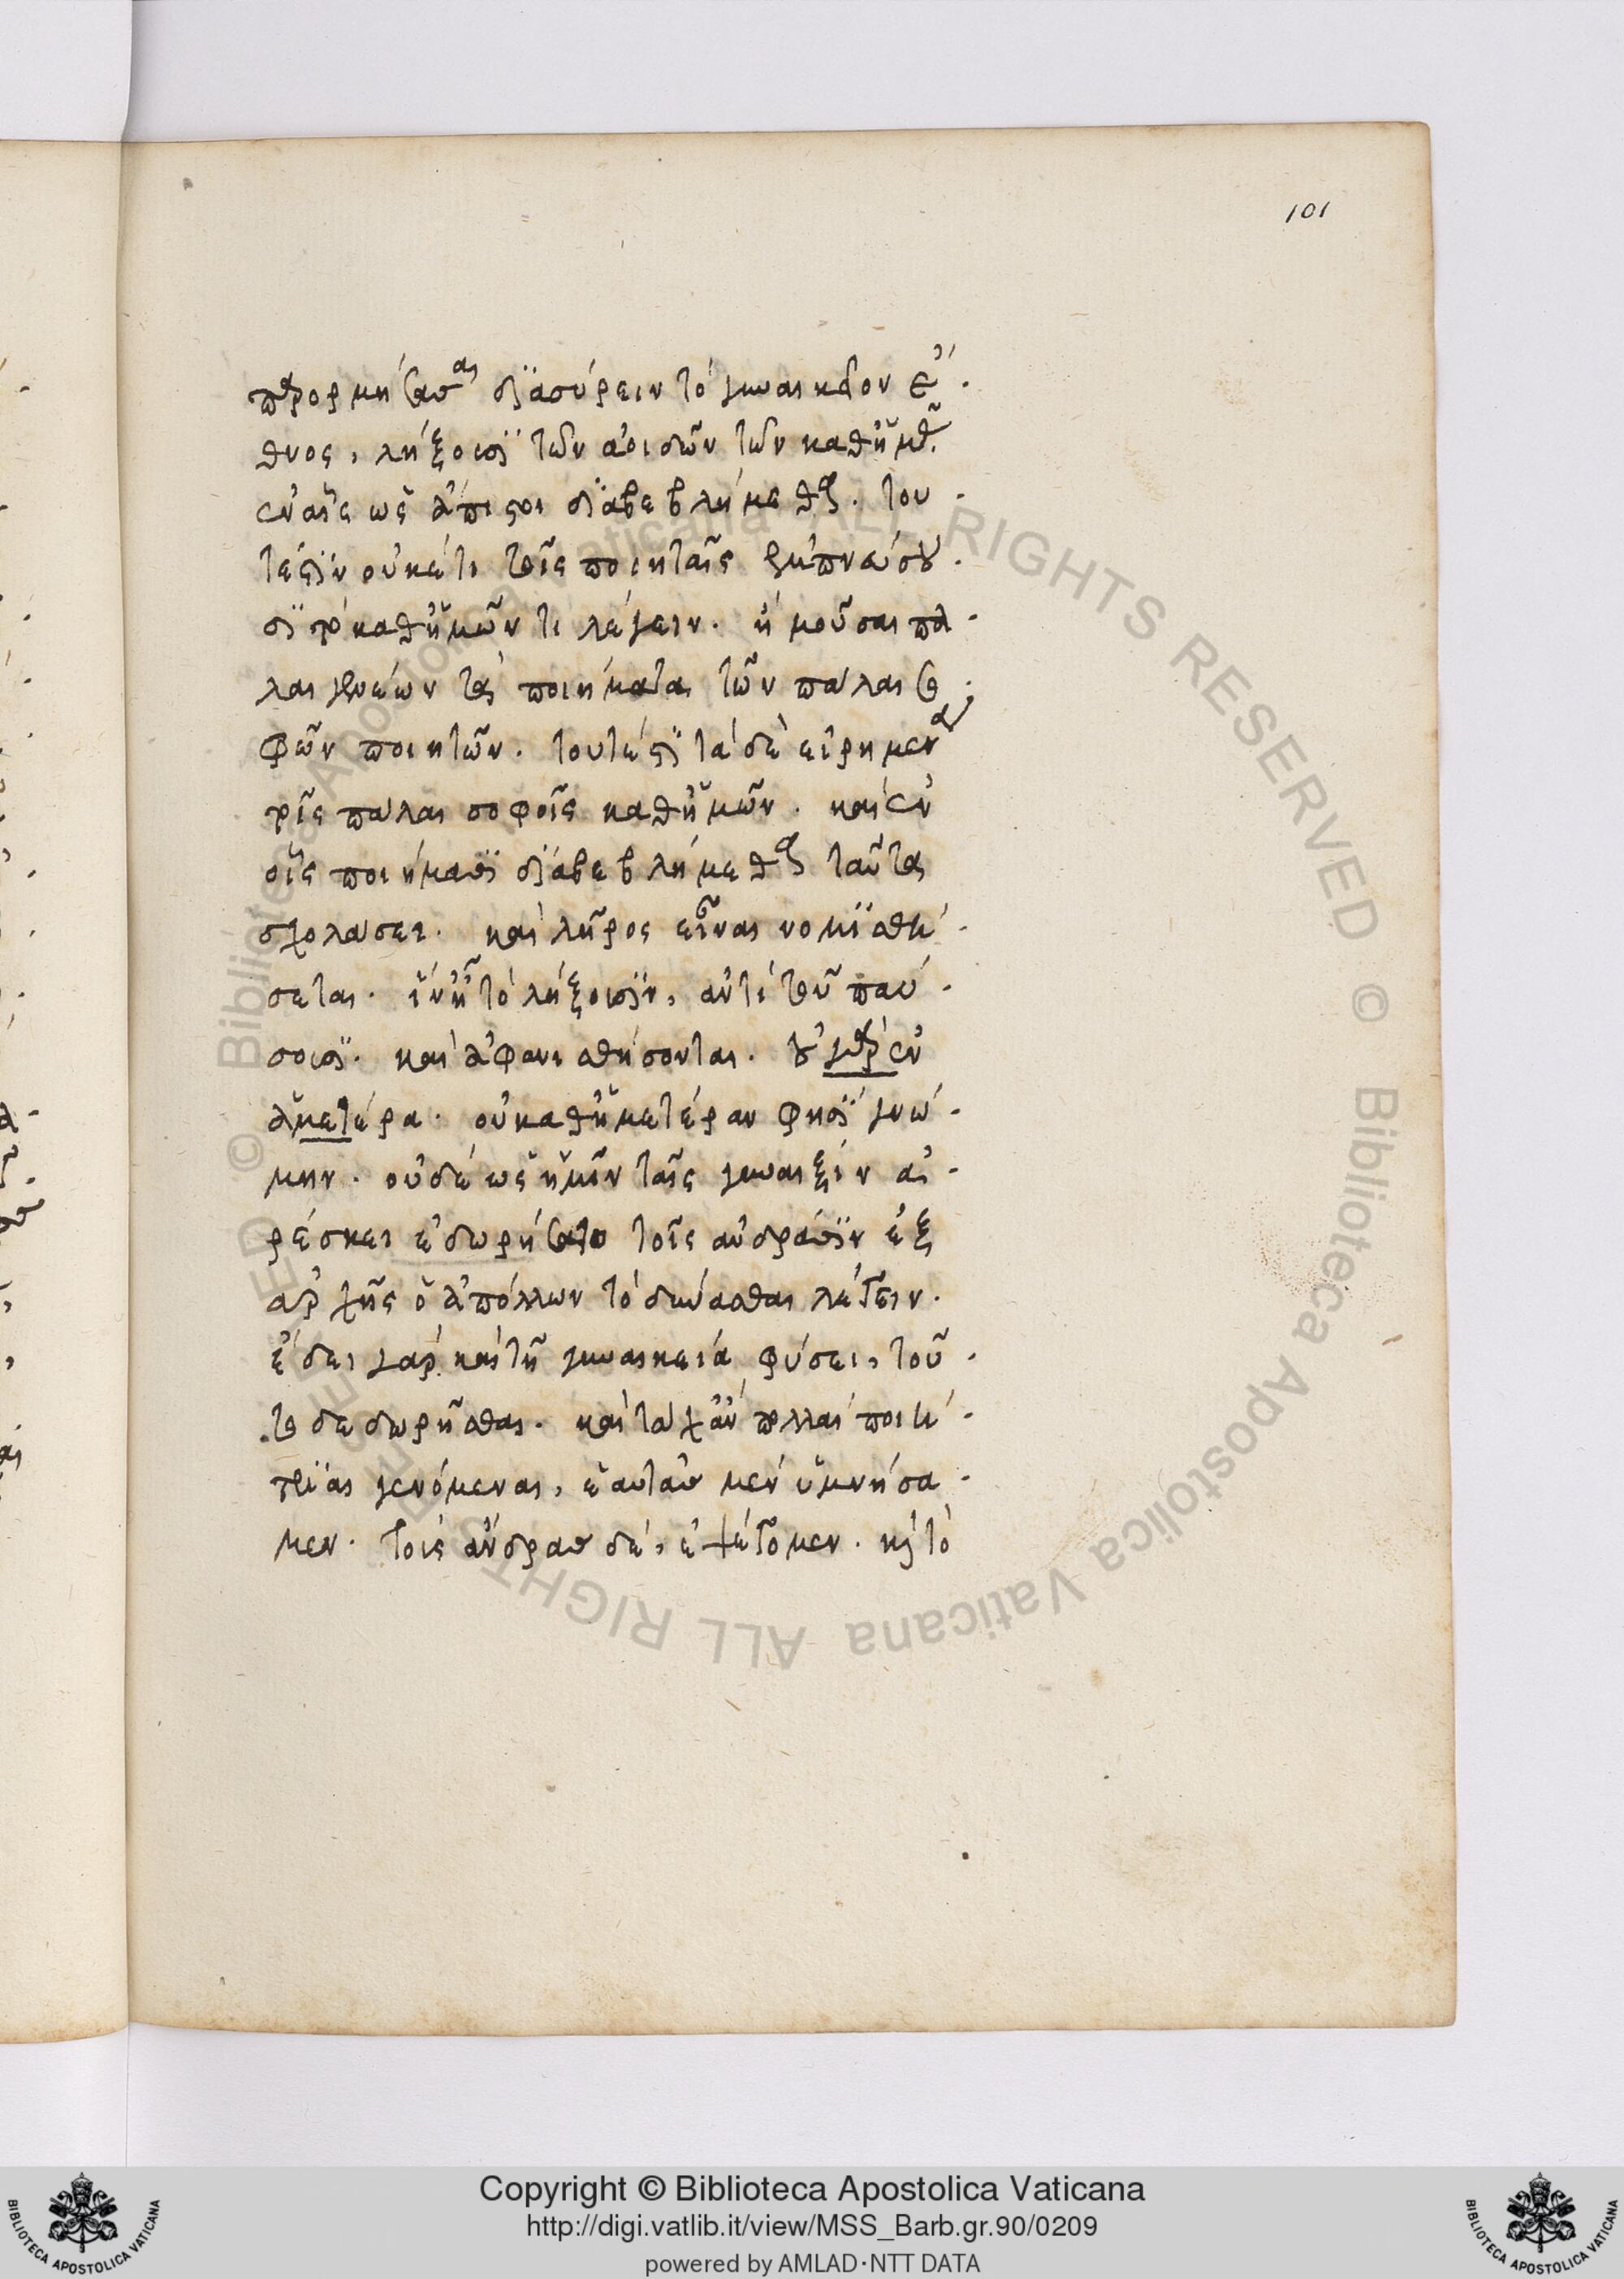 101
παρορμήσασαι διασύρειν τὸ γυναικεῖον ἔ-
θνος, λήξουσι τῶν ἀοιδῶν τῶν καθ' ἡμᾶς
ἐν αἷς ὡς ἄπιστοι διαβεβλήμεθα. του-
τέστιν οὐκέτι τοῖς ποιηταῖς ἐμπνεύσου-
σι τὸ καθ' ἡμῶν τι λέγειν. ἢ μοῦσαι πα-
λαιγενέων τὰ ποιήματα τῶν πάλαι σο-
φῶν ποιητῶν. τουτέστι τὰ δὲ εἰρημένα
τοῖς πάλαι σοφοῖς καθ' ἡμῶν. καὶ ἐν
οἷς ποιήμασι διαβεβλήμεθα ταῦτα
σχολάσει. καὶ λῆρος εἶναι νομισθή-
σεται. ἵν' ᾖ τὸ λήξουσιν, ἀντὶ τοῦ παύ-
σουσι. καὶ ἀφανισθήσονται. οὐ γὰρ ἐν
ἁμετέρα. οὐ καθ' ἡμετέραν φησὶ γνώ-
μην. οὐδὲ ὡς ἡμῖν ταῖς γυναιξὶν ἀ-
ρέσκει ἐδωρήσατο τοῖς ἀνδράσιν ἐξ
ἀρχῆς ὁ ἀπόλλων τὸ δύνασθαι λέγειν.
ἔδει γὰρ καὶ τῇ γυναικεία φύσει, τοῦ-
το δεδωρῆσθαι. καὶ τάχ' ἂν πολλαὶ ποιή-
τριαι γενόμεναι, ἑαυτὰς μὲν ὑμνήσα-
μεν. τοῖς ἄνδρας δὲ, ἐψέγομεν. καὶ τὸ
Copyright © Biblioteca Apostolica Vaticana
http://digi.vatlib.it/view/MSS_Barb.gr.90/0209
powered by AMLAD·NTT DATA